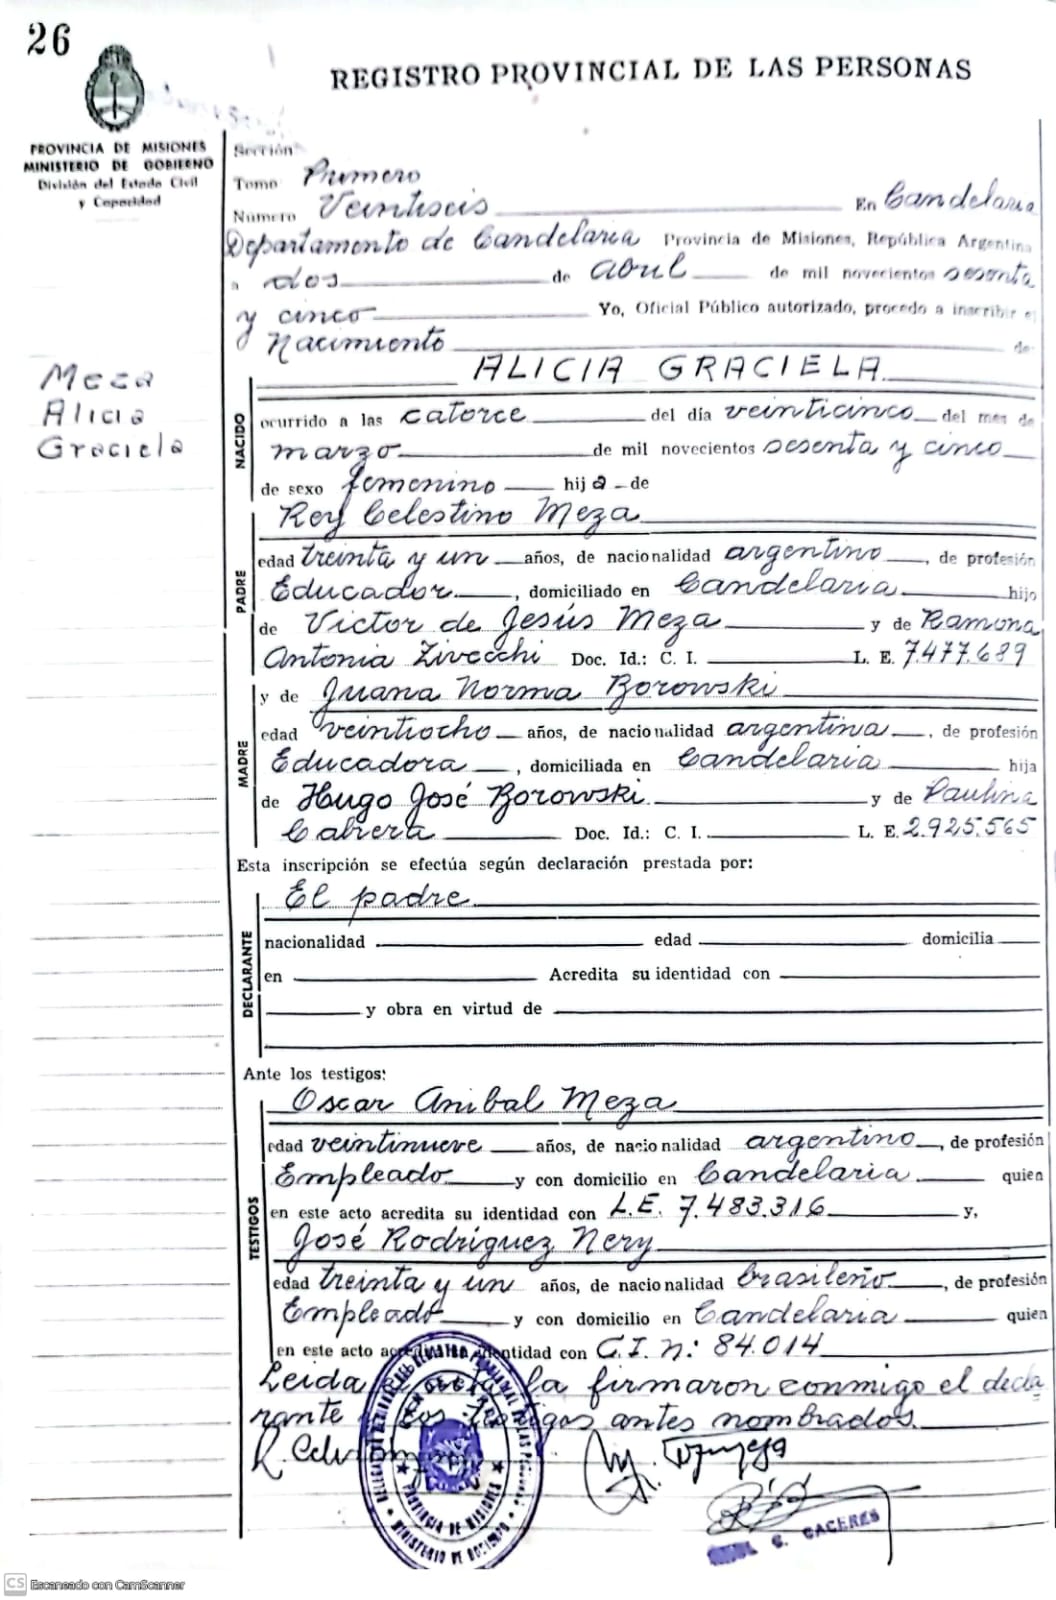 26
REGISTRO PROVINCIAL DE LAS PERSONAS
PROVINCIA DE MISIONES
MINISTERIO DE GOBIERNO
División del Estado Civil
y Capacidad
Sección
Tomo Primero
Número Veintiseis En Candelaria
Departamento de Candelaria Provincia de Misiones, República Argentina
a dos de abril de mil novecientos sesenta
y cinco Yo, Oficial Público autorizado, procedo a inscribir el
Nacimiento de
ALICIA GRACIELA
Meza
Alicia
Graciela
NACIDO
ocurrido a las catorce del día veinticinco del mes de
marzo de mil novecientos sesenta y cinco
de sexo femenino hija de
Rey Celestino Meza
PADRE
edad treinta y un años, de nacionalidad argentino, de profesión
Educador, domiciliado en Candelaria hijo
de Victor de Jesús Meza y de Ramona
Antonia Zivecchi Doc. Id.: C. I. L. E. 7.477.689
y de Juana Norma Borowski
MADRE
edad veintiocho años, de nacionalidad argentina, de profesión
Educadora, domiciliada en Candelaria hija
de Hugo José Borowski y de Paulina
Cabrera Doc. Id.: C. I. L. E. 2.925.565
Esta inscripción se efectúa según declaración prestada por:
El padre
DECLARANTE
nacionalidad edad domicilia
en Acredita su identidad con
y obra en virtud de
Ante los testigos:
Oscar Anibal Meza
TESTIGOS
edad veintinueve años, de nacionalidad argentino, de profesión
Empleado y con domicilio en Candelaria quien
en este acto acredita su identidad con L.E. 7.483.316 y,
José Rodríguez Nery
edad treinta y un años, de nacionalidad brasileño, de profesión
Empleado y con domicilio en Candelaria quien
en este acto identidad con C.I. n: 84.014
Leida la firmaron conmigo el decla
rante antes nombrados.
PROVINCIA DE MISIONES
MINISTERIO DE GOBIERNO
C. CACERES
CS Escaneado con CamScanner